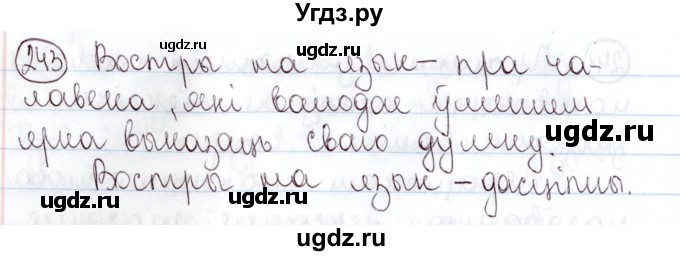 Угдз.ру
243 Востры на язык – пра ча-
лавека, які валодае ўменнем
ярка выказаць сваю думку.
Востры на язык – дасціпны.
©gdz.ru
©gdz.ru
©gdz.ru
ugdz.ru
ugdz.ru
ugdz.ru
ugdz.ru
ugdz.ru
ugdz.ru